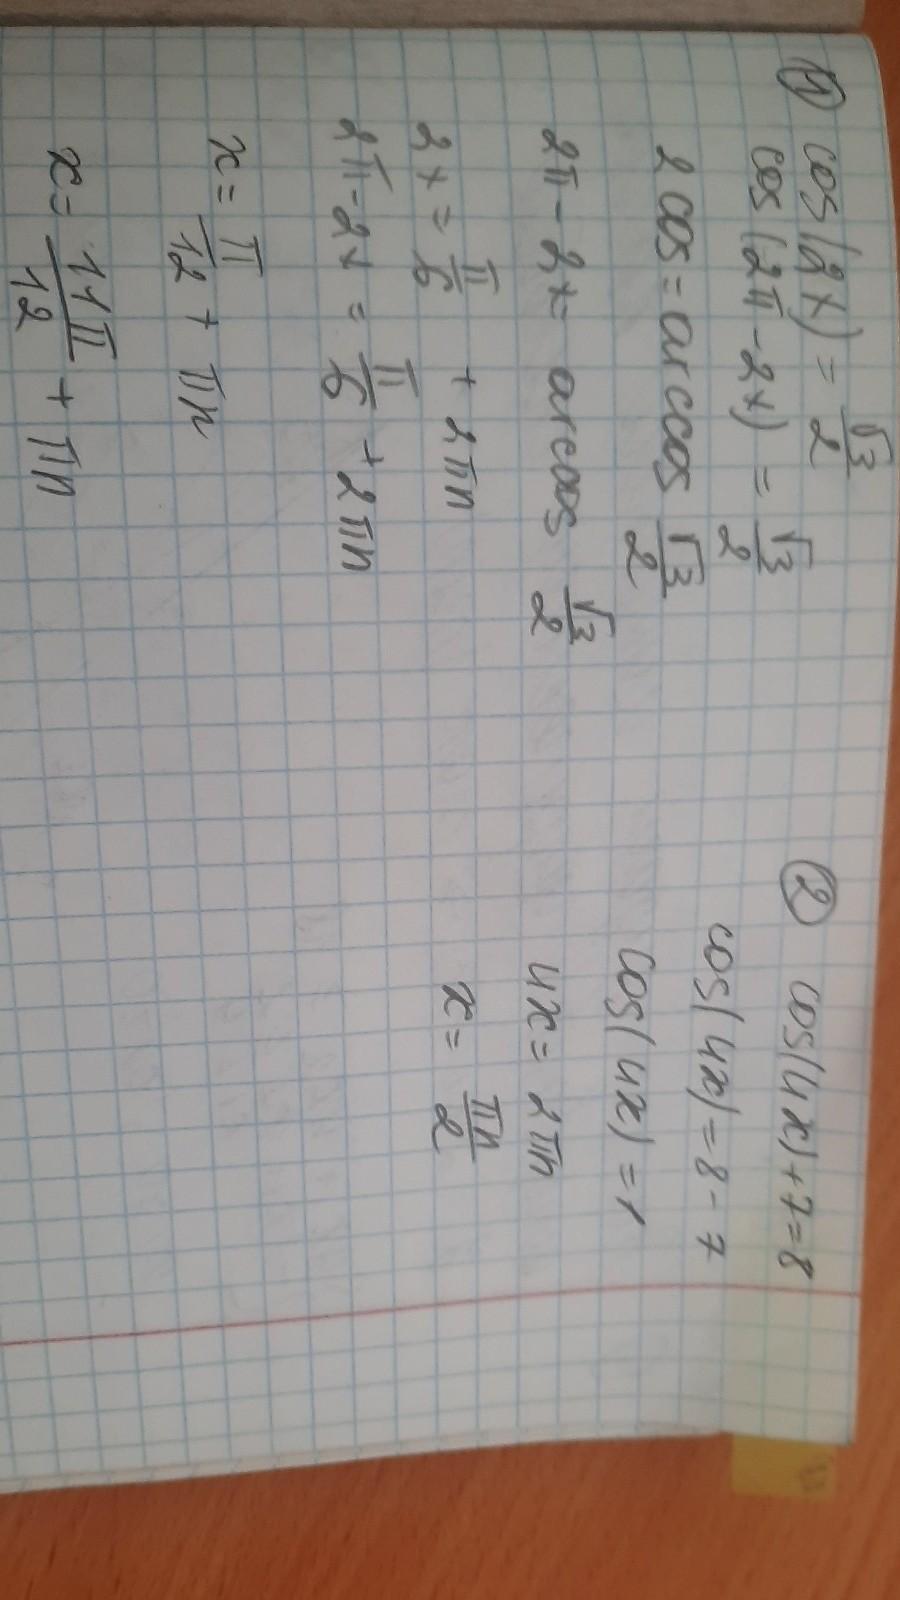 ① cos(2x) = √3/2
cos(2π - 2x) = √3/2
2 cos = arccos √3/2
2π - 2x = arcoos √3/2
2x = π/6 + 2πn
2π - 2x = π/6 + 2πn
x = π/12 + πn
x = 11π/12 + πn
② cos(4x) + 7 = 8
cos(4x) = 8 - 7
cos(4x) = 1
4x = 2πn
x = πn/2